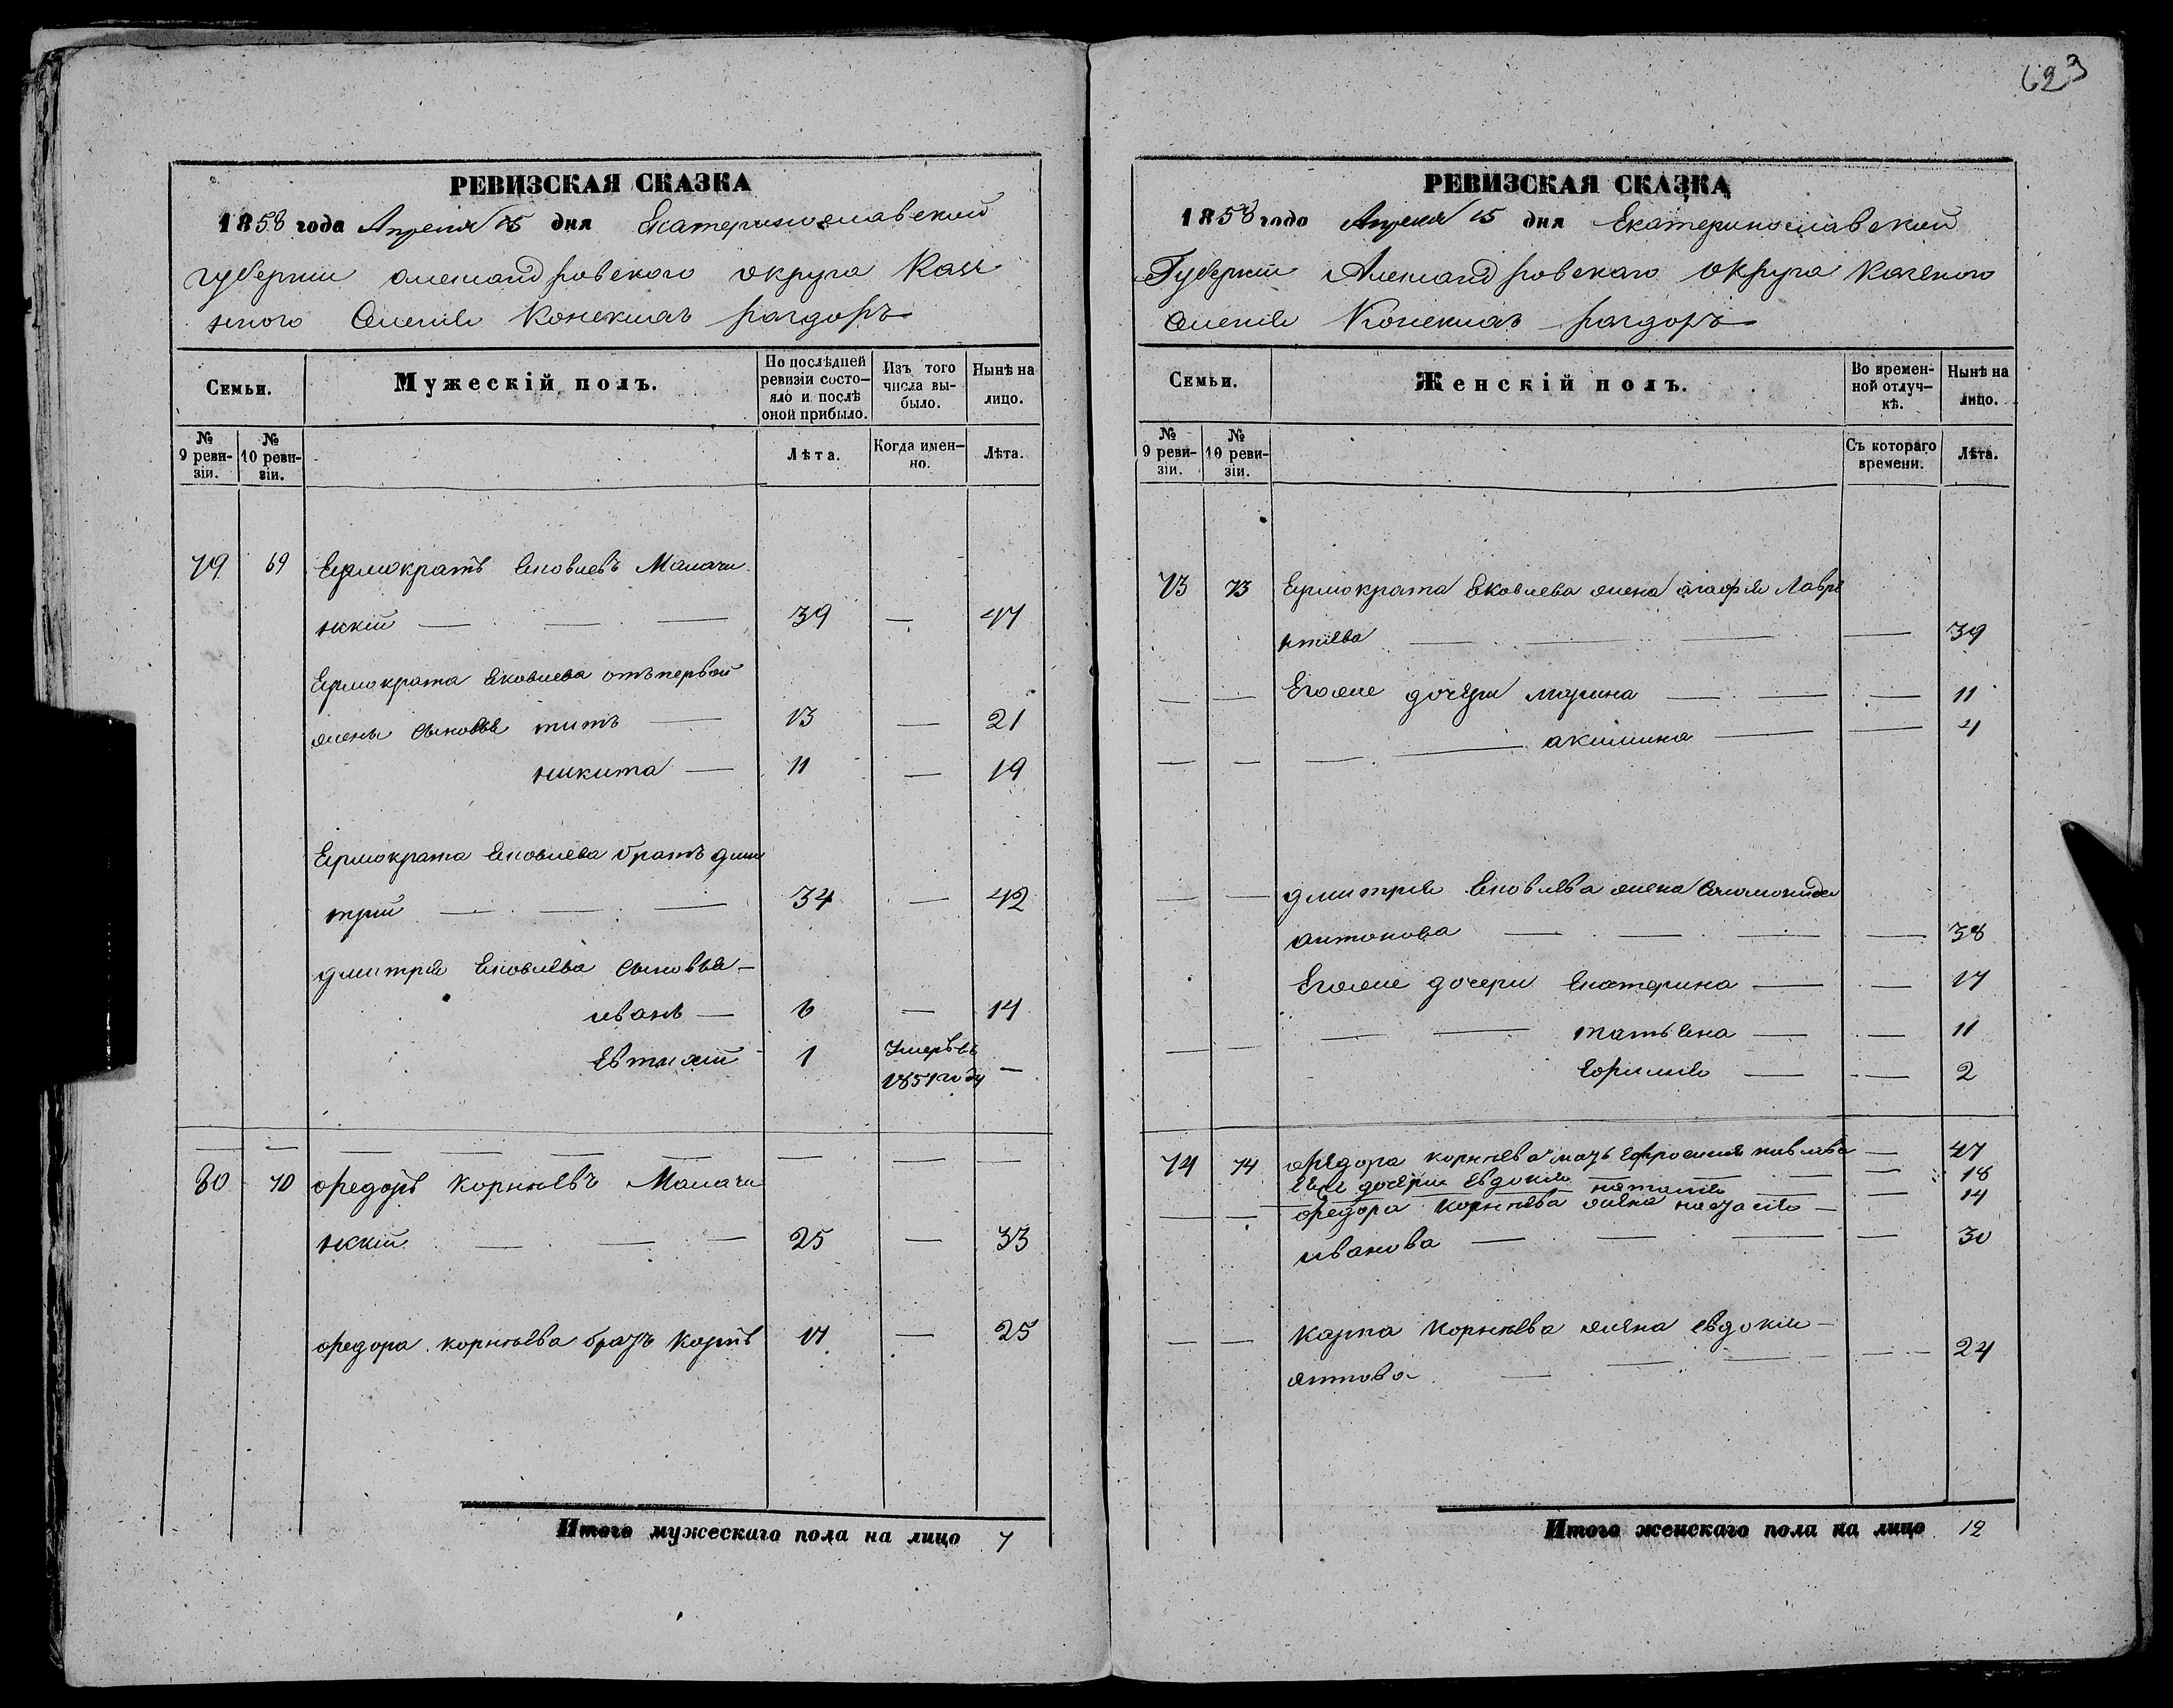 623
РЕВИЗСКАЯ СКАЗКА
1858 года Апреля 15 дня Екатеринославской
губернии Александровского округа Казе
нного селенiе Конские раздоръ
Семьи.
Мужескiй полъ.
По послѣдней ревизiи состо- яло и послѣ оной прибыло.
Изъ того числа вы- было.
Нынѣ на лицо.
№ 9 реви- зiи.
№ 10 реви- зiи.
Лѣта.
Когда имен- но.
Лѣта.
79 69 Ермократъ Яковлевъ Малачи
нскiй — — — 39 — 47
Ермократа Яковлева отъ первой
жены сыновья титъ — 13 — 21
никита — 11 — 19
Ермократа Яковлева братъ дми
трiй — — — 34 — 42
дмитрiя Яковлева сыновья —
иванъ — 6 — 14
Евтихiй 1 Умеръ въ 1851 году —
80 70 федоръ корнѣевъ Малачи
нскiй — — — 25 — 33
федора корнѣева братъ карпъ 17 — 25
Итого мужескаго пола на лицо 7
РЕВИЗСКАЯ СКАЗКА
1858 года Апреля 15 дня Екатеринославской
Губернiи Александровскаго округа Казеного
селенiе Конские раздоръ
Семьи.
Женскiй полъ.
Во времен- ной отлуч- кѣ.
Нынѣ на лицо.
№ 9 реви- зiи.
№ 10 реви- зiи.
Съ котораго времени.
Лѣта.
73 73 Ермократа Яковлева жена агафiя Лавре
нтiева — — — — 39
— — Егоже дочери марина — — — 11
— — — — акилина — — 4
— — дмитрiя Яковлева жена
антонова — — — — 38
Егоже дочери Екатерина — — 17
— — — — татьяна — — 11
Ефимiя — — 2
74 74 федора корнѣева мать Ефросинiя павлова — 47
Ее же дочери Евдокiя — — — 18
наталiя — — 14
— — федора корнѣева жена наталiя —
иванова — — — — 30
— — карпа корнѣева жена евдокiя —
— — — — 24
Итого женскаго пола на лицо 12